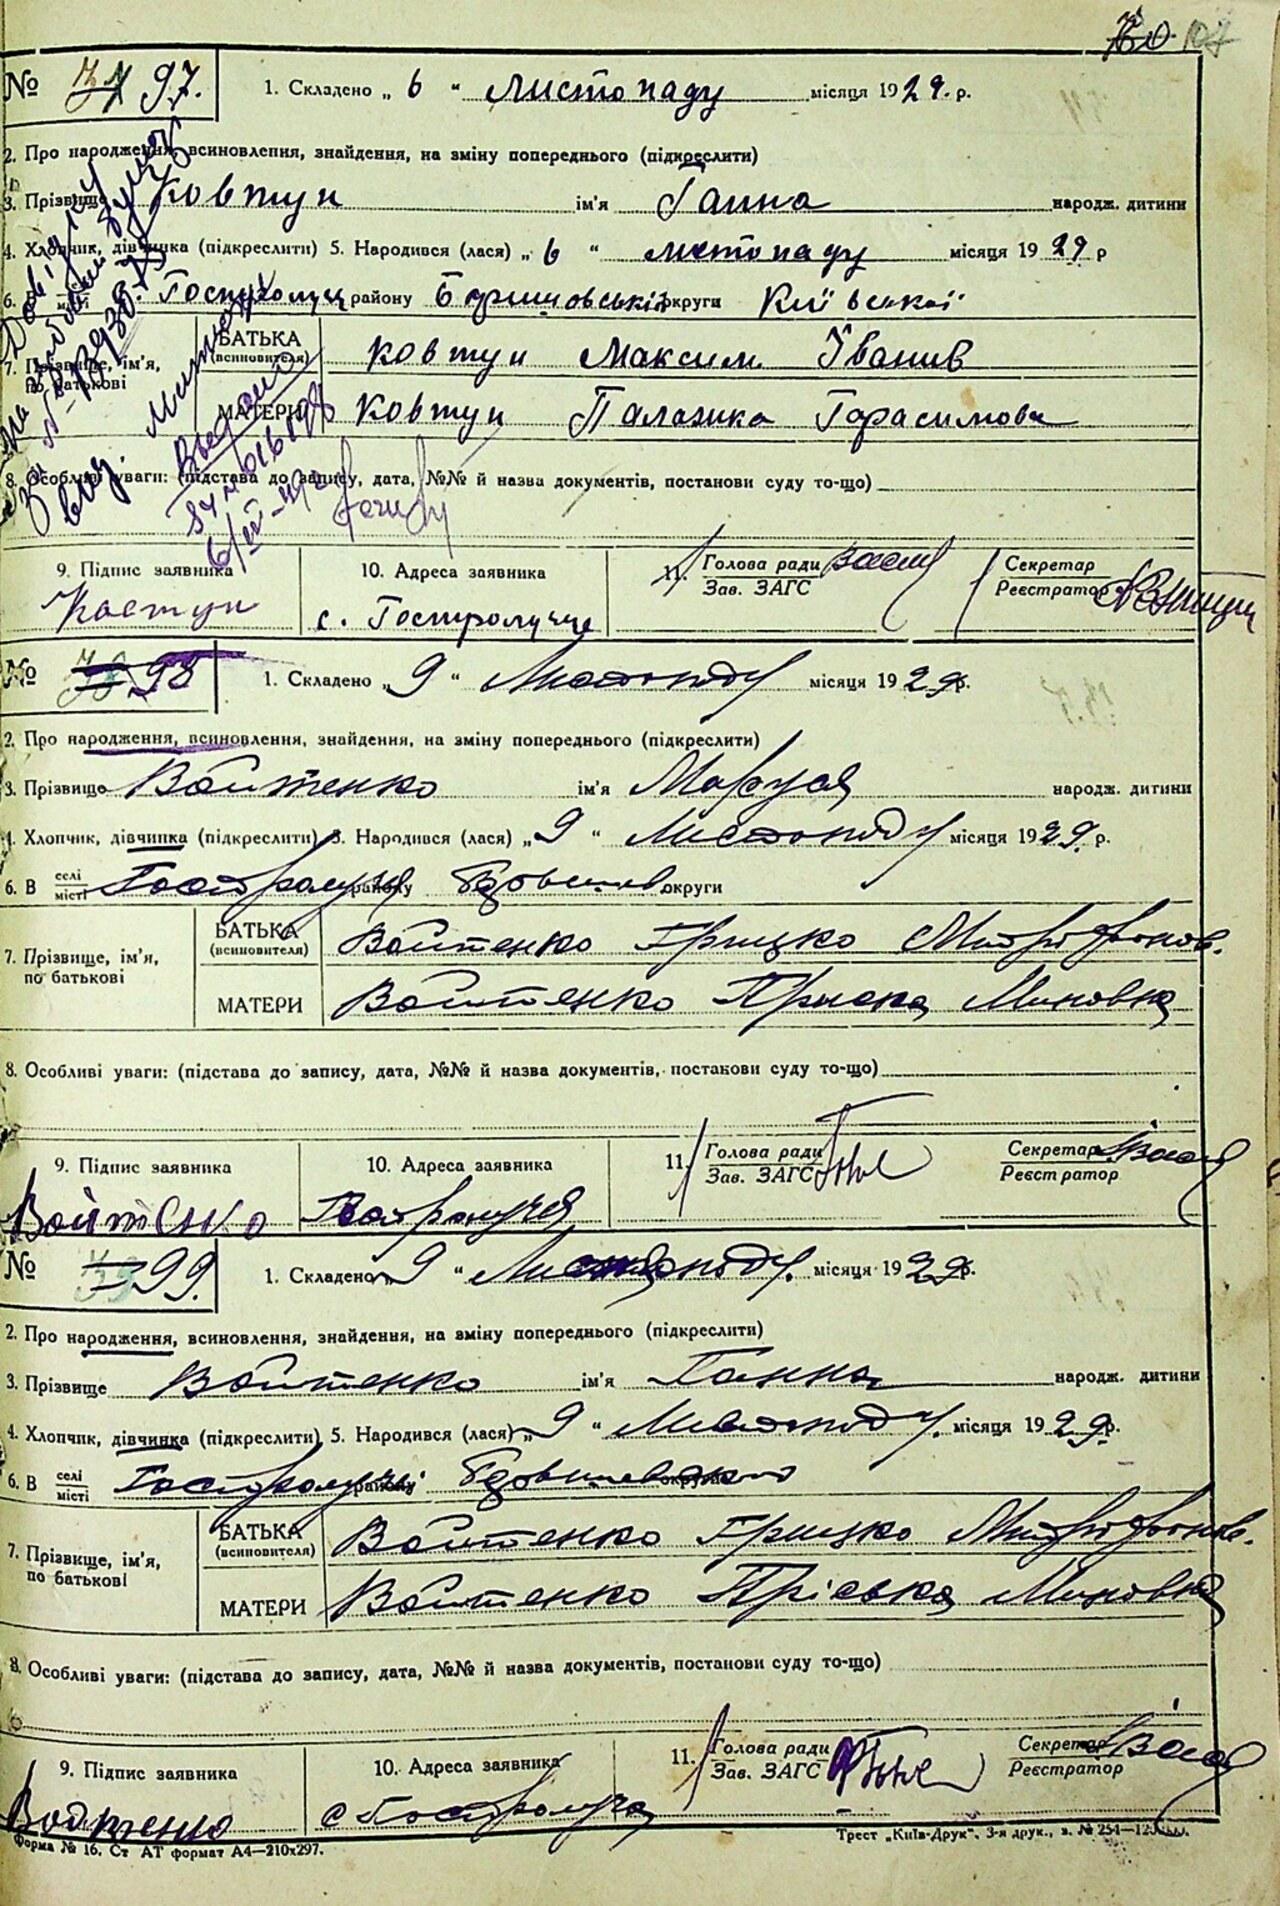 № 97.
1. Складено „ 6 " Листопаду місяця 1929. р.
2. Про народження, всиновлення, знайдення, на зміну попереднього (підкреслити)
3. Прізвище Ковтун ім'я Ганна народж. дитини
4. Хлопчик, дівчинка (підкреслити) 5. Народився (лася) „ 6 " листопаду місяця 1929 р
6. місті Гостролуччі району Баришовський округи Київської
7. Прізвище, ім'я, по батькові
БАТЬКА (всиновителя) Ковтун Максим Іванив
МАТЕРИ Ковтун Палажка Гарасимовна
8. Особливі уваги: (підстава до запису, дата, №№ й назва документів, постанови суду то-що)
9. Підпис заявника 10. Адреса заявника 11. Голова ради Секретар
Зав. ЗАГС Реєстратор
Ковтун с. Гостролучче
№ 98
1. Складено „ 9 " Листопаду місяця 1929р.
2. Про народження, всиновлення, знайдення, на зміну попереднього (підкреслити)
3. Прізвище Войтенко ім'я Маруся народж. дитини
4. Хлопчик, дівчинка (підкреслити) 5. Народився (лася) „ 9 " Листопаду місяця 1929. р.
6. В селі місті Гостролуччі району округи
7. Прізвище, ім'я, по батькові
БАТЬКА (всиновителя) Войтенко Грицко Митрофанов.
МАТЕРИ Войтенко Приска Миновна
8. Особливі уваги: (підстава до запису, дата, №№ й назва документів, постанови суду то-що)
9. Підпис заявника 10. Адреса заявника 11. Голова ради Секретар
Зав. ЗАГС Реєстратор
Войтенко Гостролуччя
№ 99.
1. Складено „ 9 " Листопаду. місяця 1929р.
2. Про народження, всиновлення, знайдення, на зміну попереднього (підкреслити)
3. Прізвище Войтенко ім'я Ганна народж. дитини
4. Хлопчик, дівчинка (підкреслити) 5. Народився (лася) „ 9 " Листопаду. місяця 1929р.
6. В селі місті Гостролуччі району округи
7. Прізвище, ім'я, по батькові
БАТЬКА (всиновителя) Войтенко Грицко Митрофанов.
МАТЕРИ Войтенко Пріська Миновна
8. Особливі уваги: (підстава до запису, дата, №№ й назва документів, постанови суду то-що)
9. Підпис заявника 10. Адреса заявника 11. Голова ради Секретар
Зав. ЗАГС Реєстратор
Войтенко с Гостролуча
Форма № 16. Ст АТ формат А4—210х297. Трест „Київ-Друк". 3-я друк., з. № 254